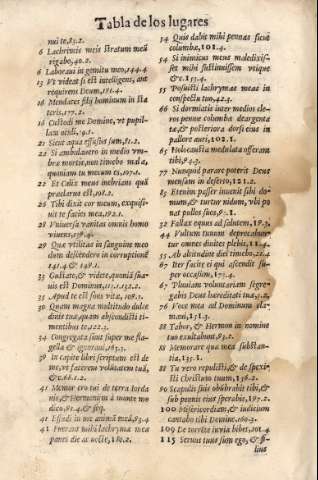 Tabla de los lugares
nui te, 83.2.
6 Lachrimis meis stratum meũ
rigabo, 40.2.
6 Laboraui in gemitu meo, 144.4
13 Vt videat si est intelligens, aut
requirens Deum, 191.4.
16 Mendaces filij hominum in sta
teris, 177.2.
16 Custodi me Domine, vt pupil-
lam oculi, 94.1.
21 Sicut aqua effusus sum, 81.2.
22 Si ambulauero in medio vm-
bra mortis, non timebo mala,
quoniam tu mecum es, 107.1.
22 Et Calix meus inebrians quã
praeclarus est, 191.2.
26 Tibi dixit cor meum, exquisi-
uit te facies mea, 192.1.
38 Vniuersa vanitas omnis homo
viuens, 178.4.
29 Quæ vtilitas in sanguine meo
dum descendero in corruptionẽ
141.4. & 148.1.
33 Gustate, & videte, quoniã sua-
uis est Dominus, 111.1.132.2.
35 Apud te est fons vitæ, 108.1.
30 Quam magna multitudo dulce
dinis tuæ, quam abscondisti ti-
mentibus te, 122.3.
34 Congregata sunt super me fla-
gella & ignoraui, 163.3.
39 In capite libri scriptum est de
me, vt facerem voluntatem tuã,
& c. 66.1.2.
41 Memor ero tui de terra Iorda
nis, & Hermonim à monte mo
dico, 91.4. & seq.
41 Effudi in me animã meã, 93.4
41 Fuerunt mihi lachrymæ meæ
panes die ac nocte, 180.2.
54 Quis dabit mihi pennas sicut
columbæ, 101.4.
54 Si inimicus meus maledixis-
set mihi sustinuissem vtique
& c. 153.4.
55 Posuisti lachrymas meas in
conspectu tuo, 42.3.
66 Si dormiatis inter medios cle-
ros pennæ columbæ deargenta
tæ, & posteriora dorsi eius in
pallore auri, 102.1.
65 Holocausta medulata offeram
tibi, 94.3.
77 Nunquid parare poterit Deus
mensam in deserto, 121.2.
83 Etenim passer inuenit sibi do-
mum, & turtur nidum, vbi po
nat pullos suos, 92.1.
32 Fallax equus ad salutem, 19.3.
44 Vultum tuum deprecabuntur
omnes diuites plebis, 11.4.
55 Ab altitudine diei timebo, 22.4
67 Iter facite ei qui ascendit su-
per occasum, 175.4.
67 Pluuiam voluntariam segre-
gabis Deus hæreditati tuæ, 1.2.
76 Voce mea ad Dominum cla-
maui, 131.3.
88 Tabor, & Hermon in nomine
tuo exultabunt, 93.2.
88 Memorare quæ mea substan-
tia, 135.1.
88 Tu vero repulisti, & de spexi-
sti Christum tuum, 136.2.
90 Scapulis suis obũbrabit tibi, &
sub pennis eius sperabis, 197.2.
100 Misericordiam, & iudicium
cantabo tibi Domine, 160.3.
109 De torrẽte in via bibet, 101.4
115 Seruus tuus siũ ego, & fi-
lius